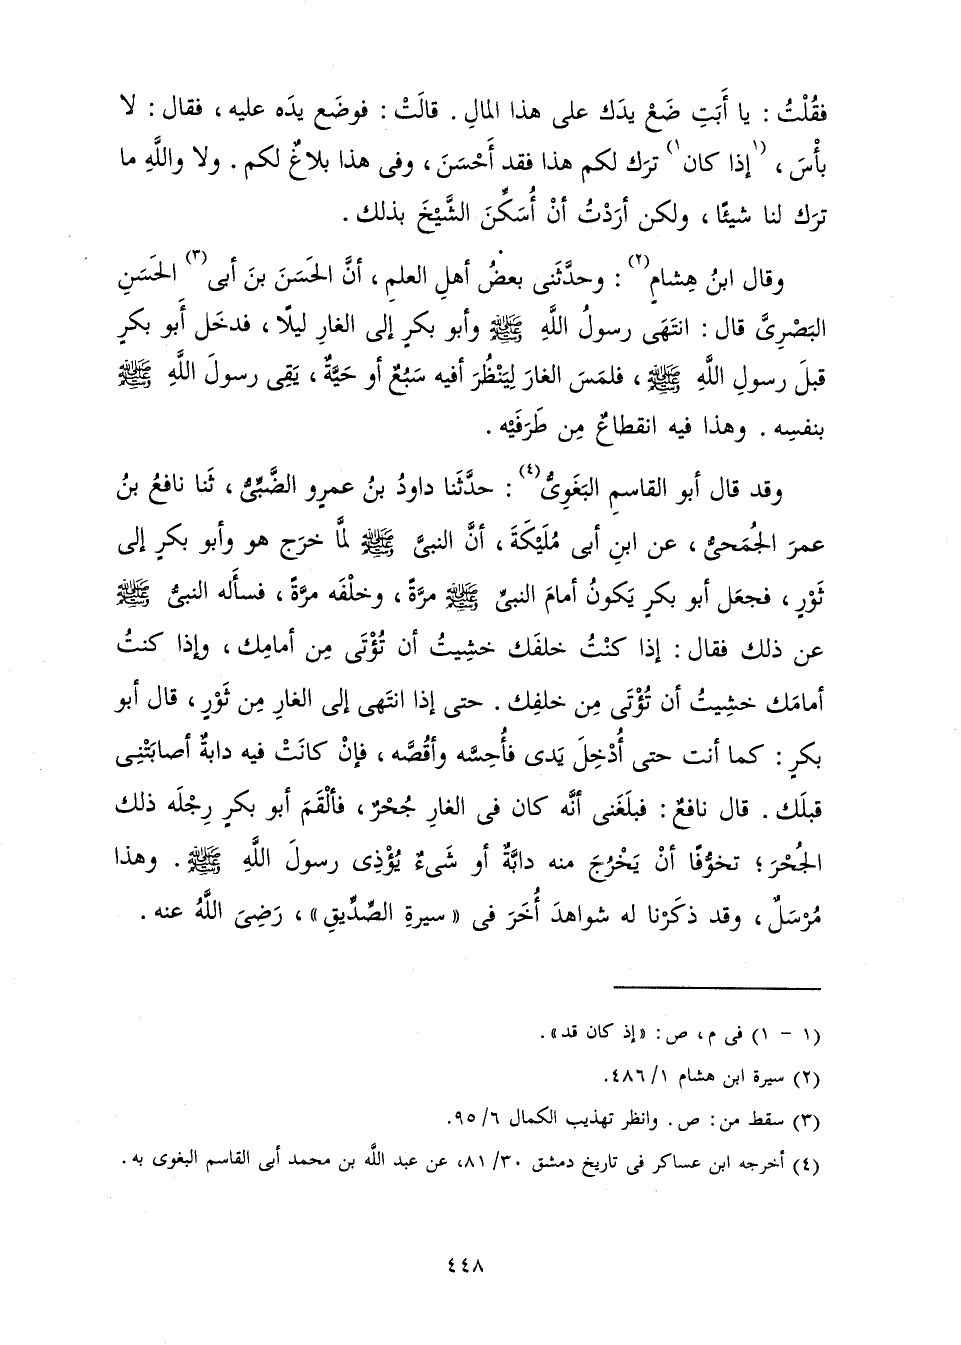 فقُلْتُ : يا أَبَتِ ضَعْ يدَك على هذا المالِ . قالَتْ : فوضَع يدَه عليه ، فقال : لا
بأْسَ ، (١إذا كان١) ترَك لكم هذا فقد أَحْسَنَ ، وفى هذا بلاغٌ لكم . ولا واللَّهِ ما
ترَك لنا شيئًا ، ولكن أرَدْتُ أنْ أُسَكِّنَ الشَّيْخَ بذلك .
وقال ابنُ هِشامٍ(٢) : وحدَّثَنى بعضُ أهلِ العلمِ ، أنَّ الحَسَنَ بنَ أبى(٣) الحَسَنِ
البَصْرِىَّ قال : انتَهَى رسولُ اللَّهِ ﷺ وأبو بكرٍ إلى الغارِ ليلًا ، فدخَل أبو بكرٍ
قبلَ رسولِ اللَّهِ ﷺ ، فلمَسَ الغارَ لِيَنْظُرَ أفيه سَبُعٌ أو حَيَّةٌ ، يَقِى رسولَ اللَّهِ ﷺ
بنفسِه . وهذا فيه انقطاعٌ مِن طَرَفَيْه .
وقد قال أبو القاسمِ البَغَوِىُّ(٤) : حدَّثَنا داودُ بنُ عمرٍو الضَّبِّىُّ ، ثَنا نافعُ بنُ
عمرَ الجُمَحىُّ ، عن ابنِ أبى مُلَيْكَةَ ، أنَّ النبىَّ ﷺ لمَّا خرَج هو وأبو بكرٍ إلى
ثَوْرٍ ، فجعَل أبو بكرٍ يَكونُ أمامَ النبىِّ ﷺ مرَّةً ، وخلْفَه مرَّةً ، فسأَله النبىُّ ﷺ
عن ذلك فقال : إذا كنْتُ خلفَك خشِيتُ أن تُؤْتَى مِن أمامِك ، وإذا كنتُ
أمامَك خشِيتُ أن تُؤْتَى مِن خلفِك . حتى إذا انتَهى إلى الغارِ مِن ثَوْرٍ ، قال أبو
بكرٍ : كما أنت حتى أُدْخِلَ يَدى فأُحِسَّه وأقُصَّه ، فإنْ كانَتْ فيه دابةٌ أصابَتْنِى
قبلَك . قال نافعٌ : فبلَغَنى أنَّه كان فى الغارِ جُحْرٌ ، فألْقَمَ أبو بكرٍ رِجْلَه ذلك
الجُحْرَ ؛ تخوُّفًا أنْ يَخْرُجَ منه دابَّةٌ أو شَىءٌ يُؤْذِى رسولَ اللَّهِ ﷺ . وهذا
مُرْسَلٌ ، وقد ذكَرْنا له شواهدَ أُخَرَ فى « سيرةِ الصِّدِّيقِ » ، رَضِىَ اللَّهُ عنه .
(١ - ١) فى م ، ص : « إذ كان قد » .
(٢) سيرة ابن هشام ١/ ٤٨٦.
(٣) سقط من : ص . وانظر تهذيب الكمال ٦/ ٩٥.
(٤) أخرجه ابن عساكر فى تاريخ دمشق ٣٠/ ٨١، عن عبد اللَّه بن محمد أبى القاسم البغوى به .
٤٤٨